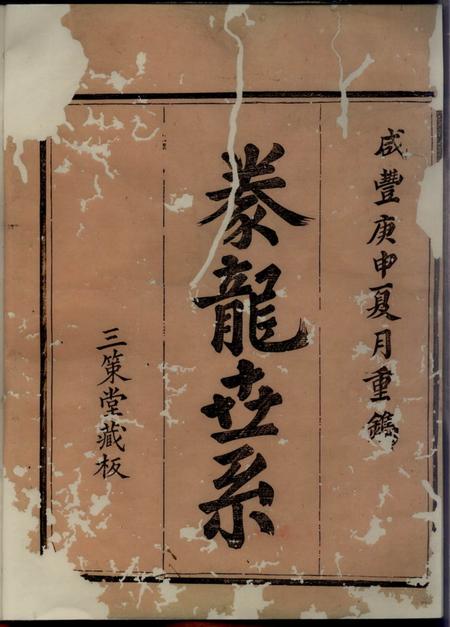 咸豐庚申夏月重鐫
豢龍世系
三策堂藏板